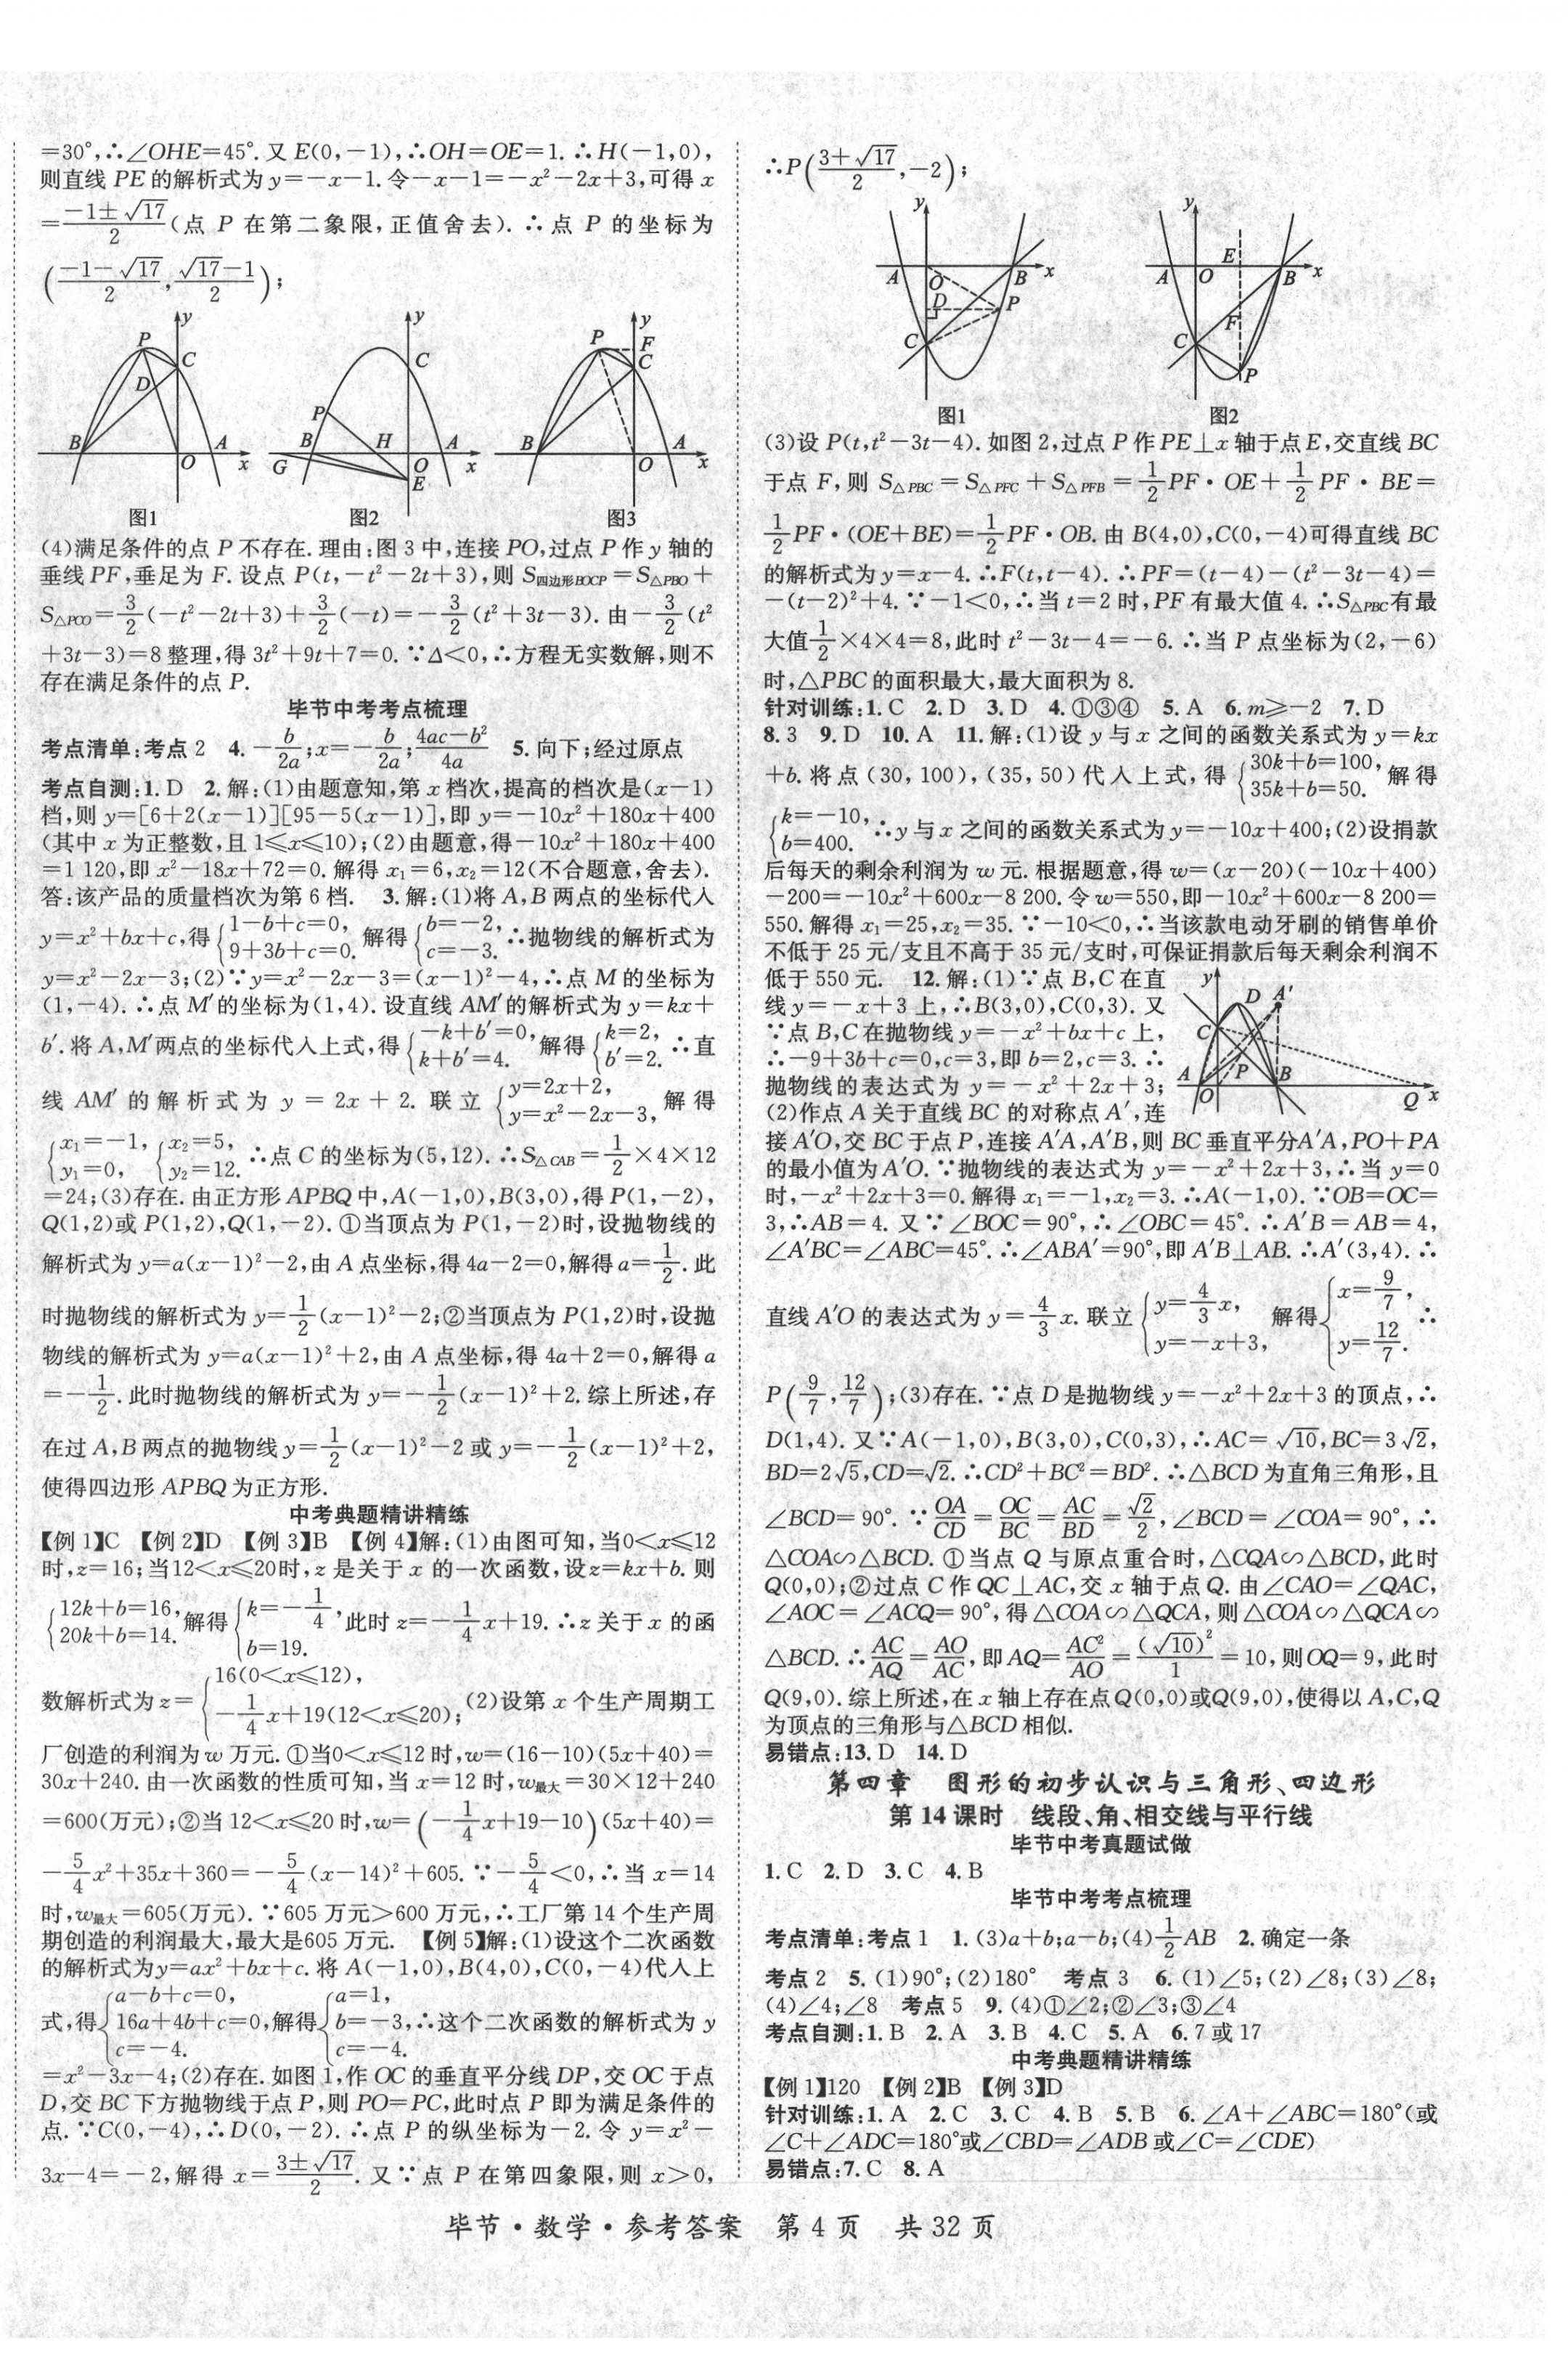 =30°,∴∠OHE=45°.又E(0,-1),∴OH=OE=1.∴H(-1,0),
则直线PE的解析式为y=-x-1.令-x-1=-x²-2x+3,可得x
=(-1±√17)/2(点P在第二象限,正值舍去).∴点P的坐标为
((-1-√17)/2,(√17-1)/2);
y P C D B O A x
y C P B H A G O x E
y P F C B O A x
图1 图2 图3
(4)满足条件的点P不存在.理由:图3中,连接PO,过点P作y轴的
垂线PF,垂足为F.设点P(t,-t²-2t+3),则S四边形BOCP=S△PBO+
S△PCO=3/2(-t²-2t+3)+3/2(-t)=-3/2(t²+3t-3).由-3/2(t²
+3t-3)=8整理,得3t²+9t+7=0.∵Δ<0,∴方程无实数解,则不
存在满足条件的点P.
毕节中考考点梳理
考点清单:考点2 4.-b/2a;x=-b/2a;(4ac-b²)/4a 5.向下;经过原点
考点自测:1.D 2.解:(1)由题意知,第x档次,提高的档次是(x-1)
档,则y=[6+2(x-1)][95-5(x-1)],即y=-10x²+180x+400
(其中x为正整数,且1≤x≤10);(2)由题意,得-10x²+180x+400
=1 120,即x²-18x+72=0.解得x₁=6,x₂=12(不合题意,舍去).
答:该产品的质量档次为第6档. 3.解:(1)将A,B两点的坐标代入
y=x²+bx+c,得{1-b+c=0, 9+3b+c=0.解得{b=-2, c=-3.∴抛物线的解析式为
y=x²-2x-3;(2)∵y=x²-2x-3=(x-1)²-4,∴点M的坐标为
(1,-4).∴点M′的坐标为(1,4).设直线AM′的解析式为y=kx+
b′.将A,M′两点的坐标代入上式,得{-k+b′=0, k+b′=4.解得{k=2, b′=2.∴直
线AM′的解析式为y=2x+2.联立{y=2x+2, y=x²-2x-3,解得
{x₁=-1, y₁=0, {x₂=5, y₂=12.∴点C的坐标为(5,12).∴S△CAB=1/2×4×12
=24;(3)存在.由正方形APBQ中,A(-1,0),B(3,0),得P(1,-2),
Q(1,2)或P(1,2),Q(1,-2).①当顶点为P(1,-2)时,设抛物线的
解析式为y=a(x-1)²-2,由A点坐标,得4a-2=0,解得a=1/2.此
时抛物线的解析式为y=1/2(x-1)²-2;②当顶点为P(1,2)时,设抛
物线的解析式为y=a(x-1)²+2,由A点坐标,得4a+2=0,解得a
=-1/2.此时抛物线的解析式为y=-1/2(x-1)²+2.综上所述,存
在过A,B两点的抛物线y=1/2(x-1)²-2或y=-1/2(x-1)²+2,
使得四边形APBQ为正方形.
中考典题精讲精练
【例1】C 【例2】D 【例3】B 【例4】解:(1)由图可知,当0<x≤12
时,z=16;当12<x≤20时,z是关于x的一次函数,设z=kx+b.则
{12k+b=16, 20k+b=14.解得{k=-1/4, b=19.此时z=-1/4x+19.∴z关于x的函
数解析式为z={16(0<x≤12), -1/4x+19(12<x≤20);(2)设第x个生产周期工
厂创造的利润为w万元.①当0<x≤12时,w=(16-10)(5x+40)=
30x+240.由一次函数的性质可知,当x=12时,w最大=30×12+240
=600(万元);②当12<x≤20时,w=(-1/4x+19-10)(5x+40)=
-5/4x²+35x+360=-5/4(x-14)²+605.∵-5/4<0,∴当x=14
时,w最大=605(万元).∵605万元>600万元,∴工厂第14个生产周
期创造的利润最大,最大是605万元. 【例5】解:(1)设这个二次函数
的解析式为y=ax²+bx+c.将A(-1,0),B(4,0),C(0,-4)代入上
式,得{a-b+c=0, 16a+4b+c=0, c=-4.解得{a=1, b=-3, c=-4.∴这个二次函数的解析式为y
=x²-3x-4;(2)存在.如图1,作OC的垂直平分线DP,交OC于点
D,交BC下方抛物线于点P,则PO=PC,此时点P即为满足条件的
点.∵C(0,-4),∴D(0,-2).∴点P的纵坐标为-2.令y=x²-
3x-4=-2,解得x=(3±√17)/2.又∵点P在第四象限,则x>0,
∴P((3+√17)/2,-2);
y A O B x D P C
y E A O B x F C P
图1 图2
(3)设P(t,t²-3t-4).如图2,过点P作PE⊥x轴于点E,交直线BC
于点F,则S△PBC=S△PFC+S△PFB=1/2PF·OE+1/2PF·BE=
1/2PF·(OE+BE)=1/2PF·OB.由B(4,0),C(0,-4)可得直线BC
的解析式为y=x-4.∴F(t,t-4).∴PF=(t-4)-(t²-3t-4)=
-(t-2)²+4.∵-1<0,∴当t=2时,PF有最大值4.∴S△PBC有最
大值1/2×4×4=8,此时t²-3t-4=-6.∴当P点坐标为(2,-6)
时,△PBC的面积最大,最大面积为8.
针对训练:1.C 2.D 3.D 4.①③④ 5.A 6.m≥-2 7.D
8.3 9.D 10.A 11.解:(1)设y与x之间的函数关系式为y=kx
+b.将点(30,100),(35,50)代入上式,得{30k+b=100, 35k+b=50.解得
{k=-10, b=400.∴y与x之间的函数关系式为y=-10x+400;(2)设捐款
后每天的剩余利润为w元.根据题意,得w=(x-20)(-10x+400)
-200=-10x²+600x-8 200.令w=550,即-10x²+600x-8 200=
550.解得x₁=25,x₂=35.∵-10<0,∴当该款电动牙刷的销售单价
不低于25元/支且不高于35元/支时,可保证捐款后每天剩余利润不
低于550元. 12.解:(1)∵点B,C在直
线y=-x+3上,∴B(3,0),C(0,3).又
∵点B,C在抛物线y=-x²+bx+c上,
∴-9+3b+c=0,c=3,即b=2,c=3.∴
抛物线的表达式为y=-x²+2x+3;
(2)作点A关于直线BC的对称点A′,连
y D A′ C A P B O Q x
接A′O,交BC于点P,连接A′A,A′B,则BC垂直平分A′A,PO+PA
的最小值为A′O.∵抛物线的表达式为y=-x²+2x+3,∴当y=0
时,-x²+2x+3=0.解得x₁=-1,x₂=3.∴A(-1,0).∵OB=OC=
3,∴AB=4.又∵∠BOC=90°,∴∠OBC=45°.∴A′B=AB=4,
∠A′BC=∠ABC=45°.∴∠ABA′=90°,即A′B⊥AB.∴A′(3,4).∴
直线A′O的表达式为y=4/3x.联立{y=4/3x, y=-x+3,解得{x=9/7, y=12/7.∴
P(9/7,12/7);(3)存在.∵点D是抛物线y=-x²+2x+3的顶点,∴
D(1,4).又∵A(-1,0),B(3,0),C(0,3),∴AC=√10,BC=3√2,
BD=2√5,CD=√2.∴CD²+BC²=BD².∴△BCD为直角三角形,且
∠BCD=90°.∵OA/CD=OC/BC=AC/BD=√2/2,∠BCD=∠COA=90°,∴
△COA∽△BCD.①当点Q与原点重合时,△CQA∽△BCD,此时
Q(0,0);②过点C作QC⊥AC,交x轴于点Q.由∠CAO=∠QAC,
∠AOC=∠ACQ=90°,得△COA∽△QCA,则△COA∽△QCA∽
△BCD.∴AC/AQ=AO/AC,即AQ=AC²/AO=(√10)²/1=10,则OQ=9,此时
Q(9,0).综上所述,在x轴上存在点Q(0,0)或Q(9,0),使得以A,C,Q
为顶点的三角形与△BCD相似.
易错点:13.D 14.D
第四章 图形的初步认识与三角形、四边形
第14课时 线段、角、相交线与平行线
毕节中考真题试做
1.C 2.D 3.C 4.B
毕节中考考点梳理
考点清单:考点1 1.(3)a+b;a-b;(4)1/2AB 2.确定一条
考点2 5.(1)90°;(2)180° 考点3 6.(1)∠5;(2)∠8;(3)∠8;
(4)∠4;∠8 考点5 9.(4)①∠2;②∠3;③∠4
考点自测:1.B 2.A 3.B 4.C 5.A 6.7或17
中考典题精讲精练
【例1】120 【例2】B 【例3】D
针对训练:1.A 2.C 3.C 4.B 5.B 6.∠A+∠ABC=180°(或
∠C+∠ADC=180°或∠CBD=∠ADB或∠C=∠CDE)
易错点:7.C 8.A
毕节·数学·参考答案 第4页 共32页